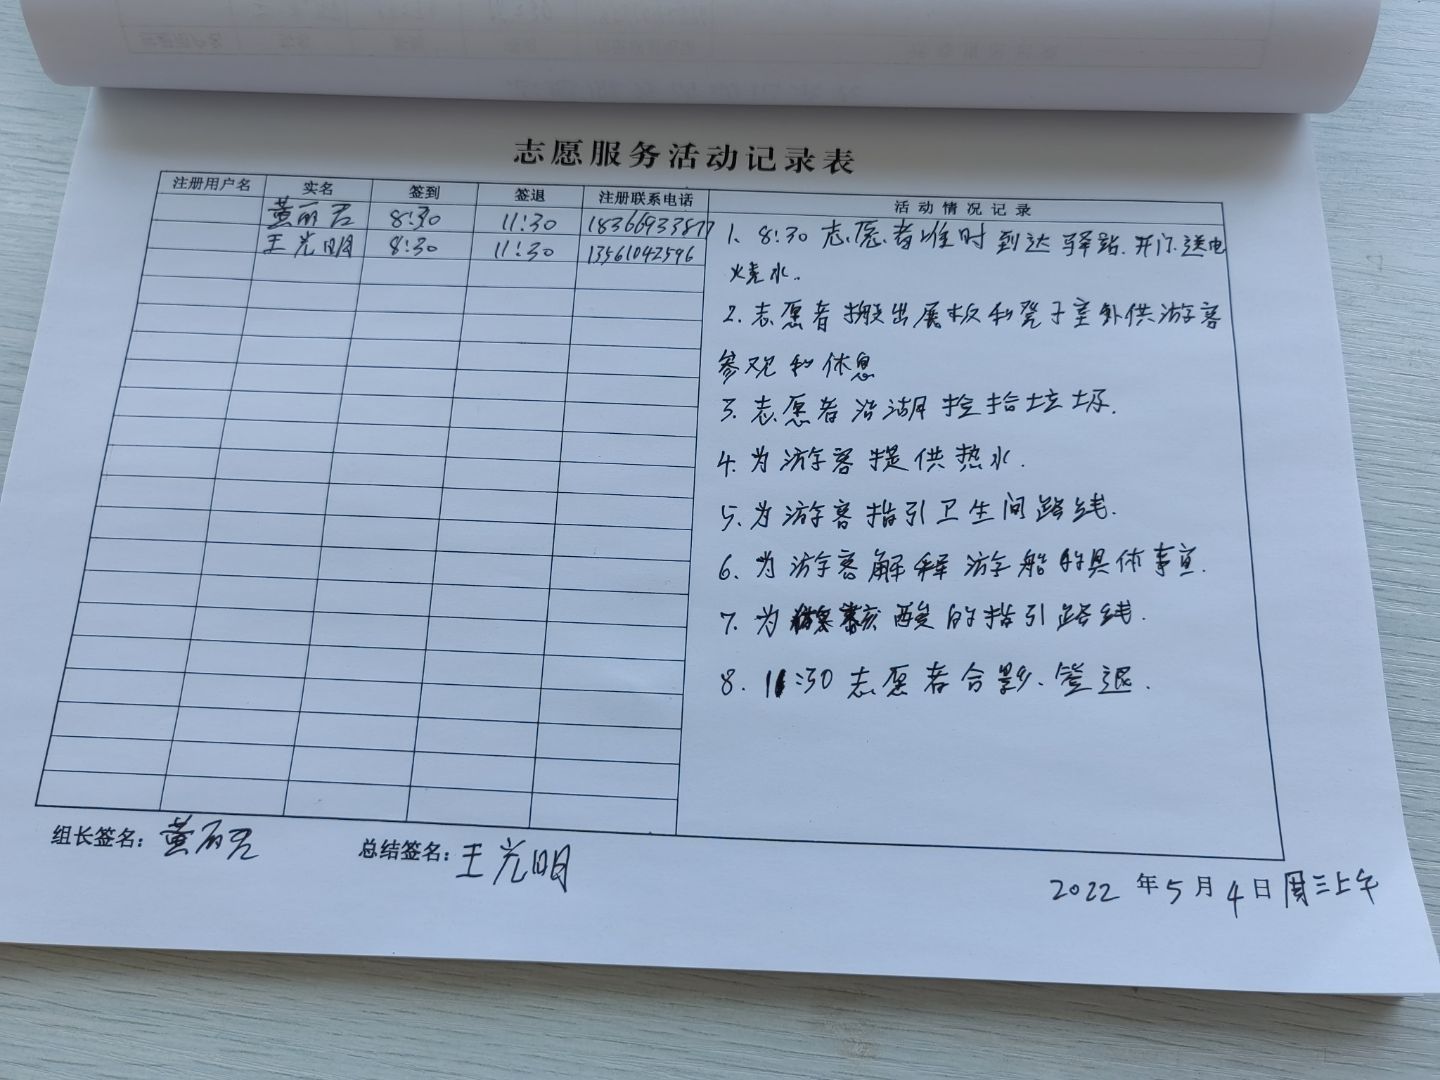 志愿服务活动记录表
注册用户名 实名 签到 签退 注册联系电话 活动情况记录
黄丽君 8:30 11:30 18366933877
王光明 8:30 11:30 13561042596
1. 8:30志愿者准时到达驿站.开门.送电
烧水.
2. 志愿者搬出展板和凳子室外供游客
参观和休息
3. 志愿者沿湖捡拾垃圾.
4. 为游客提供热水.
5. 为游客指引卫生间路线.
6. 为游客解释游船的具体事宜.
7. 为核酸的指引路线.
8. 11:30志愿者合影、签退.
组长签名：黄丽君 总结签名：王光明
2022年5月4日周三上午